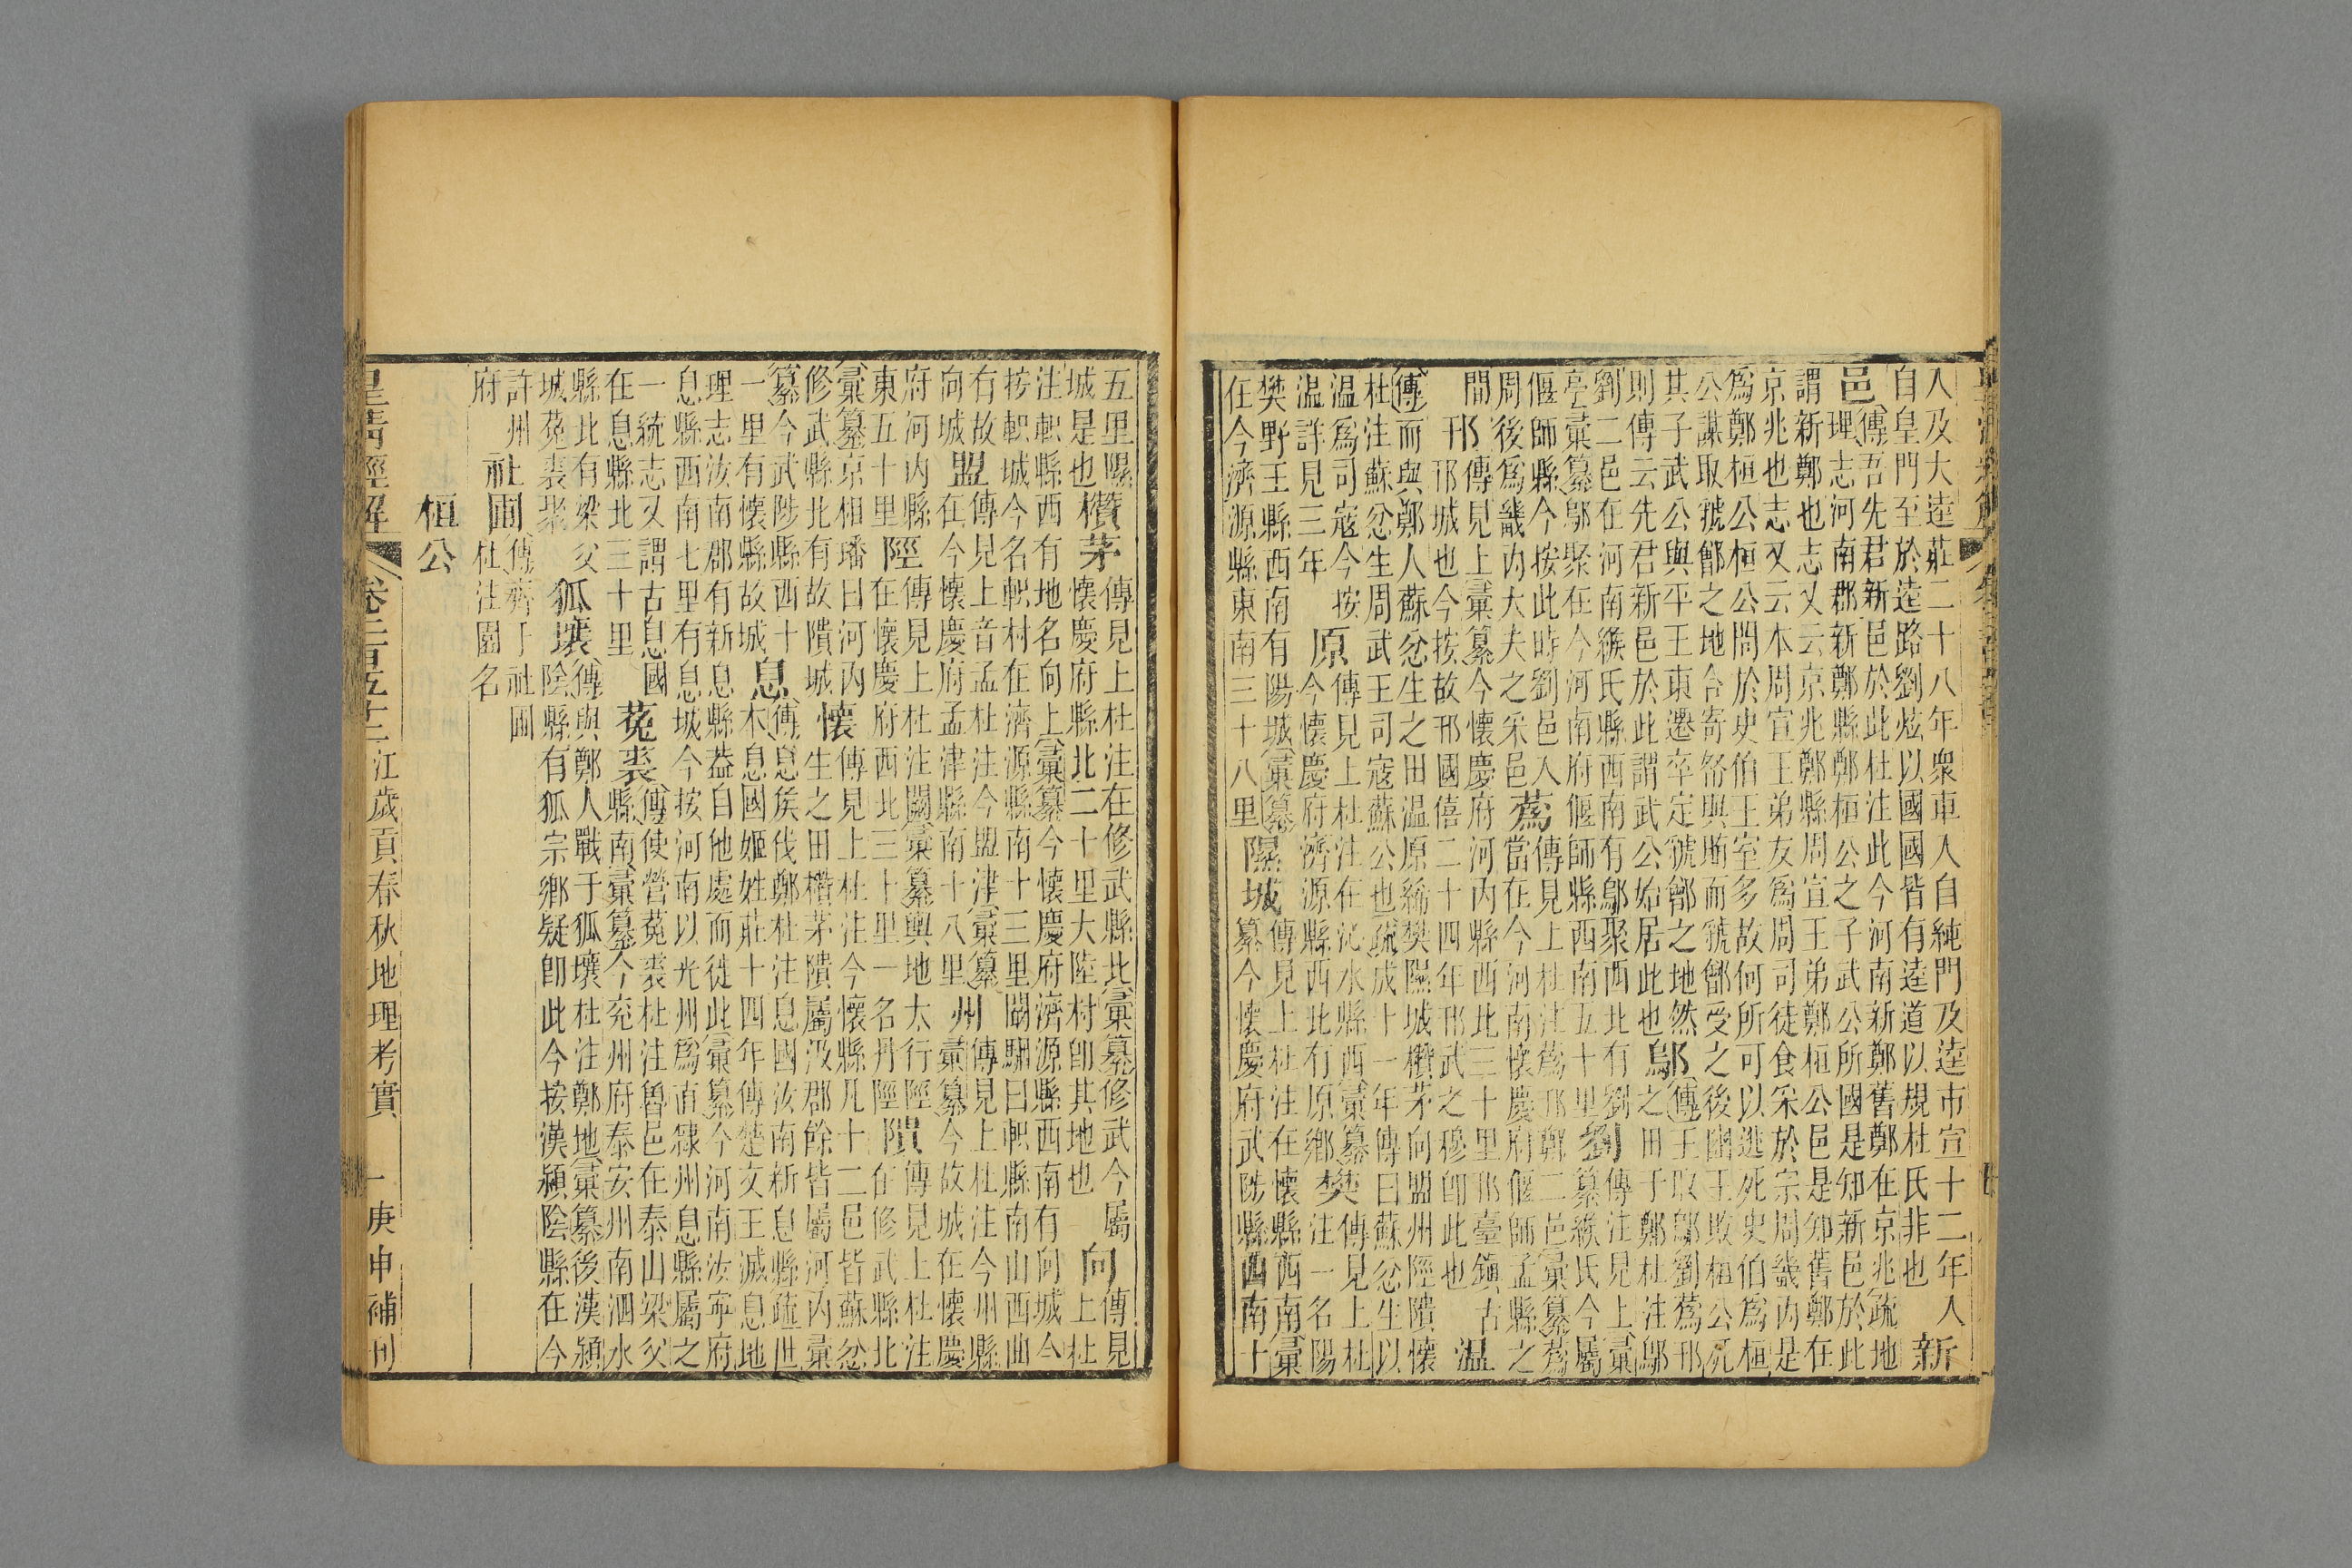 人及大逵莊二十八年衆車入自純門及逵市宣十二年入
自皇門至於逵路劉炫以國國皆有逵道以規杜氏非也 新
邑 傳吾先君新邑於此杜注此今河南新鄭舊鄭在京兆疏地
理志河南郡新鄭縣鄭桓公之子武公所國是知新邑於此
謂新鄭也志又云京兆鄭縣周宣王弟鄭桓公邑是知舊鄭在
京兆也志又云本周宣王弟友爲周司徒食采於宗周畿內是
爲鄭桓公桓公問於史伯王室多故何所可以逃死史伯爲桓
公謀取虢鄶之地合寄帑與賄而虢鄶受之後幽王敗桓公死
其子武公與平王東遷卒定虢鄶之地然
則傳云先君新邑於此謂武公始居此也 鄔 傳王取鄔劉蔿邘
之田于鄭杜注鄔
劉二邑在河南緱氏縣西南有鄔聚西北有劉
亭彙纂鄔聚在今河南府偃師縣西南五十里 劉 傳注見上彙
纂緱氏今屬
偃師縣今按此時劉邑入
周後爲畿內大夫之采邑 蔿 傳見上杜注蔿邘鄭二邑彙纂蔿
當在今河南懷慶府偃師孟縣之
間 邘 傳見上彙纂今懷慶府河內縣西北三十里邘臺鎮古
邘城也今按故邘國僖二十四年邘武之穆卽此也 温
傳而與鄭人蘇忿生之田温原絺樊隰城欑茅向盟州陘隤懷
杜注蘇忿生周武王司寇蘇公也疏成十一年傳曰蘇忿生以
温爲司寇今按
温詳見三年 原 傳見上杜注在沁水縣西彙纂
今懷慶府濟源縣西北有原鄉 樊 傳見上杜
注一名陽
樊野王縣西南有陽城彙纂
在今濟源縣東南三十八里 隰城 傳見上杜注在懷縣西南彙
纂今懷慶府武陟縣西南十
五里隰
城是也 欑茅 傳見上杜注在修武縣北彙纂修武今屬
懷慶府縣北二十里大陸村卽其地也 向 傳見
上杜
注軹縣西有地名向上彙纂今懷慶府濟源縣西南有向城今
按軹城今名軹村在濟源縣南十三里闞駰曰軹縣南山西曲
有故
向城 盟 傳見上音孟杜注今盟津彙纂
在今懷慶府孟津縣南十八里 州 傳見上杜注今州縣
彙纂今故城在懷慶
府河內縣
東五十里 陘 傳見上杜注闕彙纂輿地太行陘
在懷慶府西北三十里一名丹陘 隤 傳見上杜注
在修武縣北
彙纂京相璠曰河內
修武縣北有故隤城 懷 傳見上杜注今懷縣凡十二邑皆蘇忿
生之田欑茅隤屬汲郡餘皆屬河內彙
纂今武陟縣西十
一里有懷縣故城 息 傳息侯伐鄭杜注息國汝南新息縣疏世
本息國姬姓莊十四年傳楚文王滅息地
理志汝南郡有新息縣葢自他處而徙此彙纂今河南汝寧府
息縣西南七里有息城今按河南以光州爲直隷州息縣屬之
一統志又謂古息國
在息縣北三十里 菟裘 傳使營菟裘杜注魯邑在泰山梁父
縣南彙纂今兖州府泰安州南泗水
縣北有梁父
城菟裘聚 狐壤 傳與鄭人戰于狐壤杜注鄭地彙纂後漢潁
陰縣有狐宗鄉疑卽此今按漢潁陰縣在今
許州
府 社圃 傳齊于社圃
杜注園名
桓公
皇清經解 卷二百五十二 江歲貢春秋地理考實 一 庚申補刊